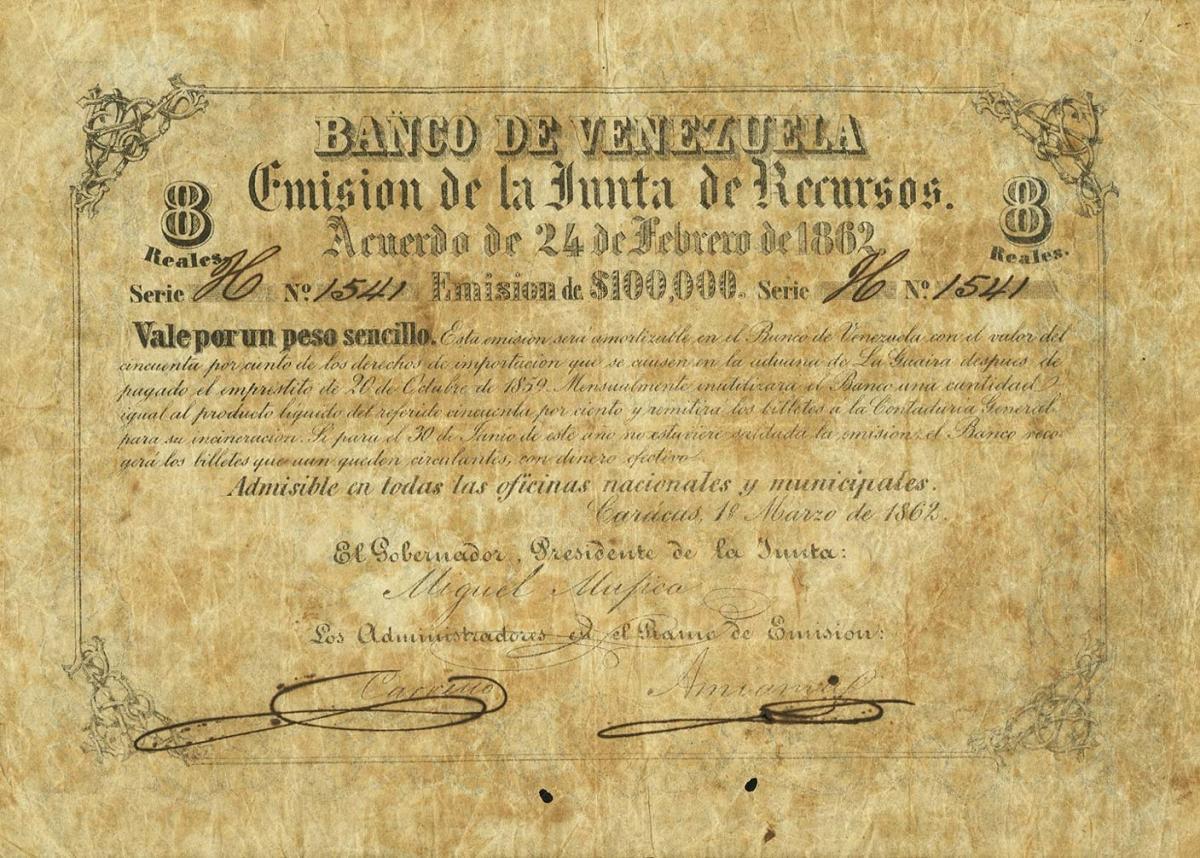 BANCO DE VENEZUELA
Emision de la Junta de Recursos.
8 8
Acuerdo de 24 de Febrero de 1862
Reales. Reales.
Serie H Nº 1541 Emision de $100,000. Serie H Nº 1541
Vale por un peso sencillo. Esta emision será amortizable en el Banco de Venezuela con el valor del
cincuenta por ciento de los derechos de importacion que se causen en la aduana de La Guaira despues de
pagado el emprestito de 20 de Octubre de 1859. Mensualmente inutilizará el Banco una cantidad
igual al producto líquido del referido cincuenta por ciento y remitirá los billetes á la Contaduria General
para su incineracion. Si para el 30 de Junio de este año no estuviere saldada la emision, el Banco reco-
gerá los billetes que aun queden circulantes, con dinero efectivo.
Admisible en todas las oficinas nacionales y municipales.
Caracas, 1º Marzo de 1862.
El Gobernador, Presidente de la Junta:
Miguel Mujica
Los Administradores en el Ramo de Emision:
Carreño